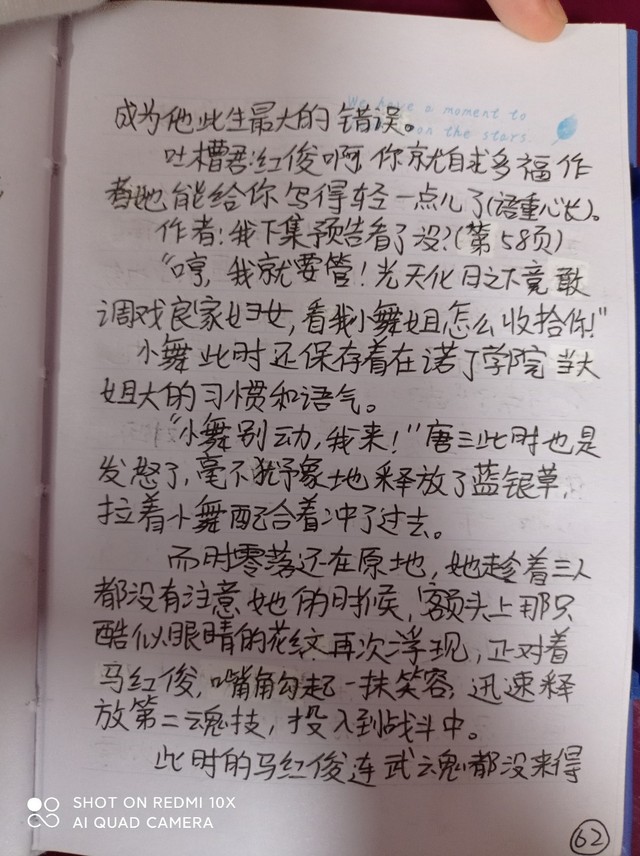 We have a moment to
on the stars
成为他此生最大的错误。
吐槽君:红俊啊,你就自求多福作
者她能给你写得轻一点儿了(语重心长)。
作者:我下集预告看了没?(第58页)
“哼,我就要管!光天化日之下竟敢
调戏良家妇女,看我小舞姐怎么收拾你!”
小舞此时还保存着在诺丁学院当大
姐大的习惯和语气。
“小舞别动,我来!”唐三此时也是
发怒了,毫不犹豫地释放了蓝银草,
拉着小舞配合着冲了过去。
而时零落还在原地,她趁着三人
都没有注意她的时候,额头上那只
酷似眼睛的花纹再次浮现,正对着
马红俊,嘴角勾起一抹笑容,迅速释
放第二魂技,投入到战斗中。
此时的马红俊连武魂都没来得
62
SHOT ON REDMI 10X
AI QUAD CAMERA